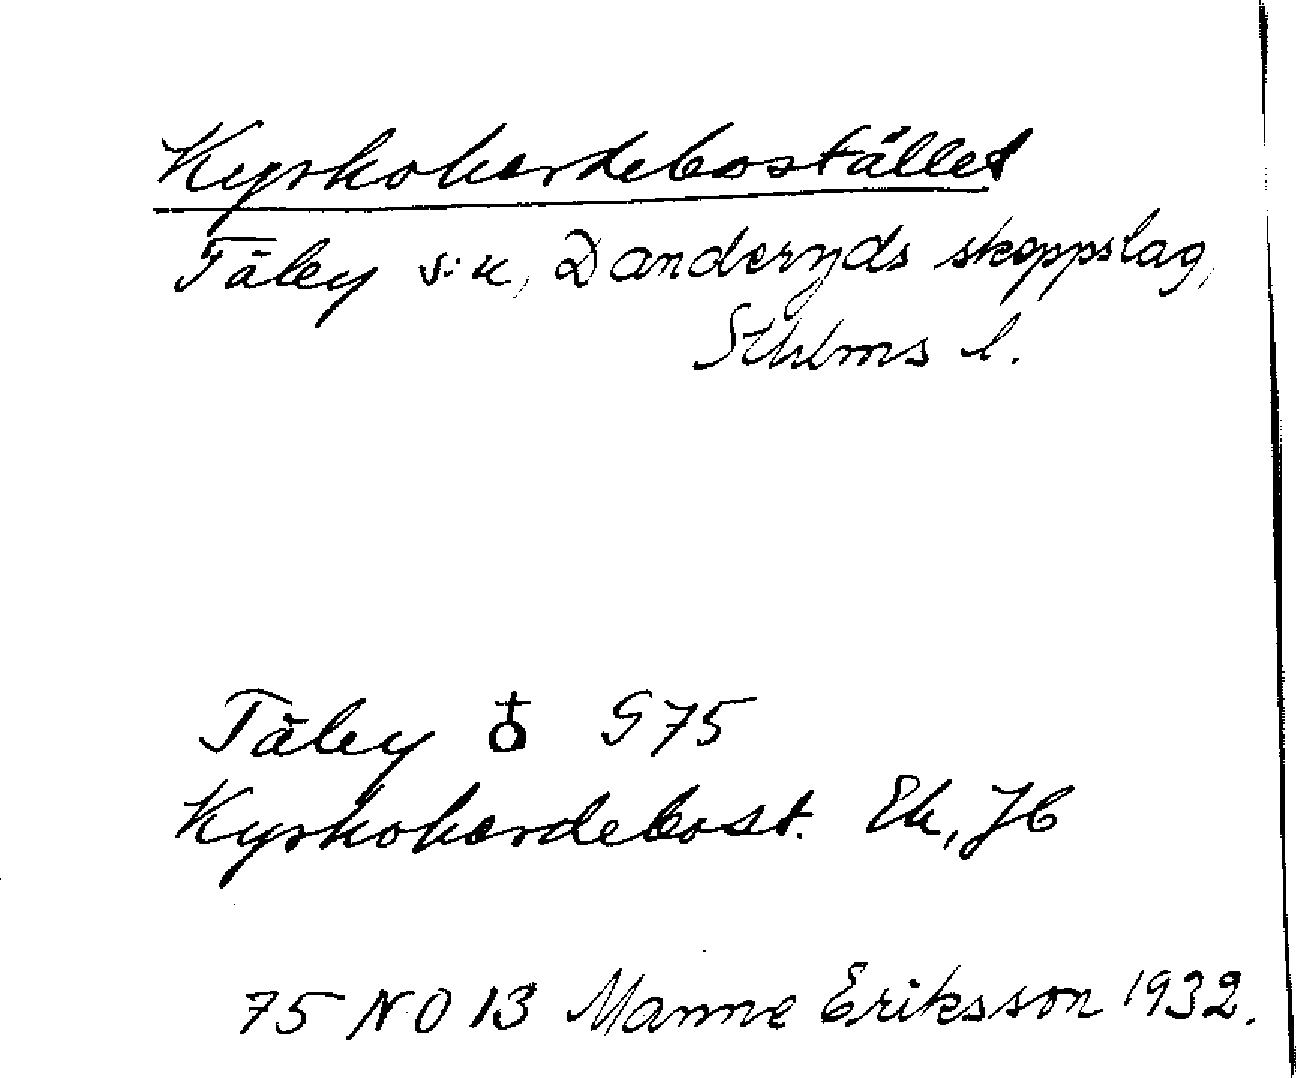 Kyrkoherdebostället
Täby s:n, Danderyds skeppslag,
Sthlms l.
Täby ♁ G75
Kyrkoherdebost. Ek, JB
75 NO 13 Manne Eriksson 1932.